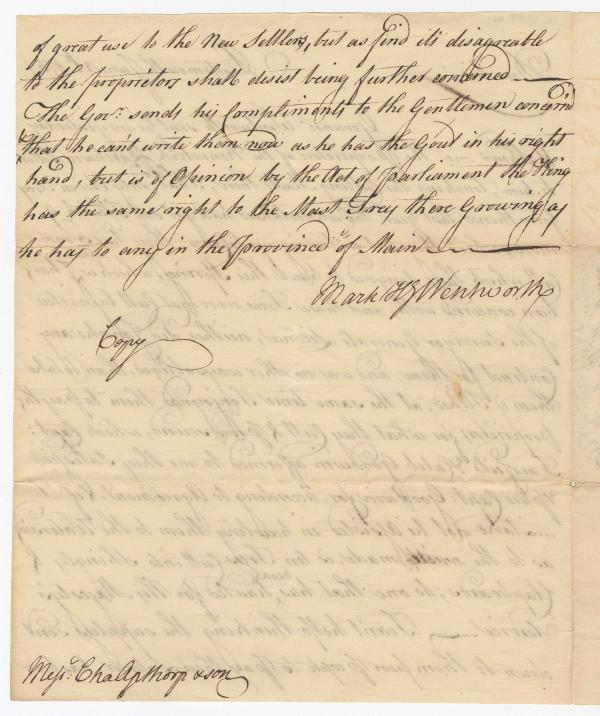 of great use to the New Settlers, but as find it's disagreeable
to the proprietors shall desist being further concerned
The Govr. sends his Compliments to the Gentlemen concern'd
that he can't write them now as he has the Gout in his right
hand, but is of Opinion by the Act of Parliament the King
has the same right to the Mast Trees there Growing as
he has to any in the Province of Main
Mark Hg Wentworth
Copy
Messrs. Cha Apthorp & son